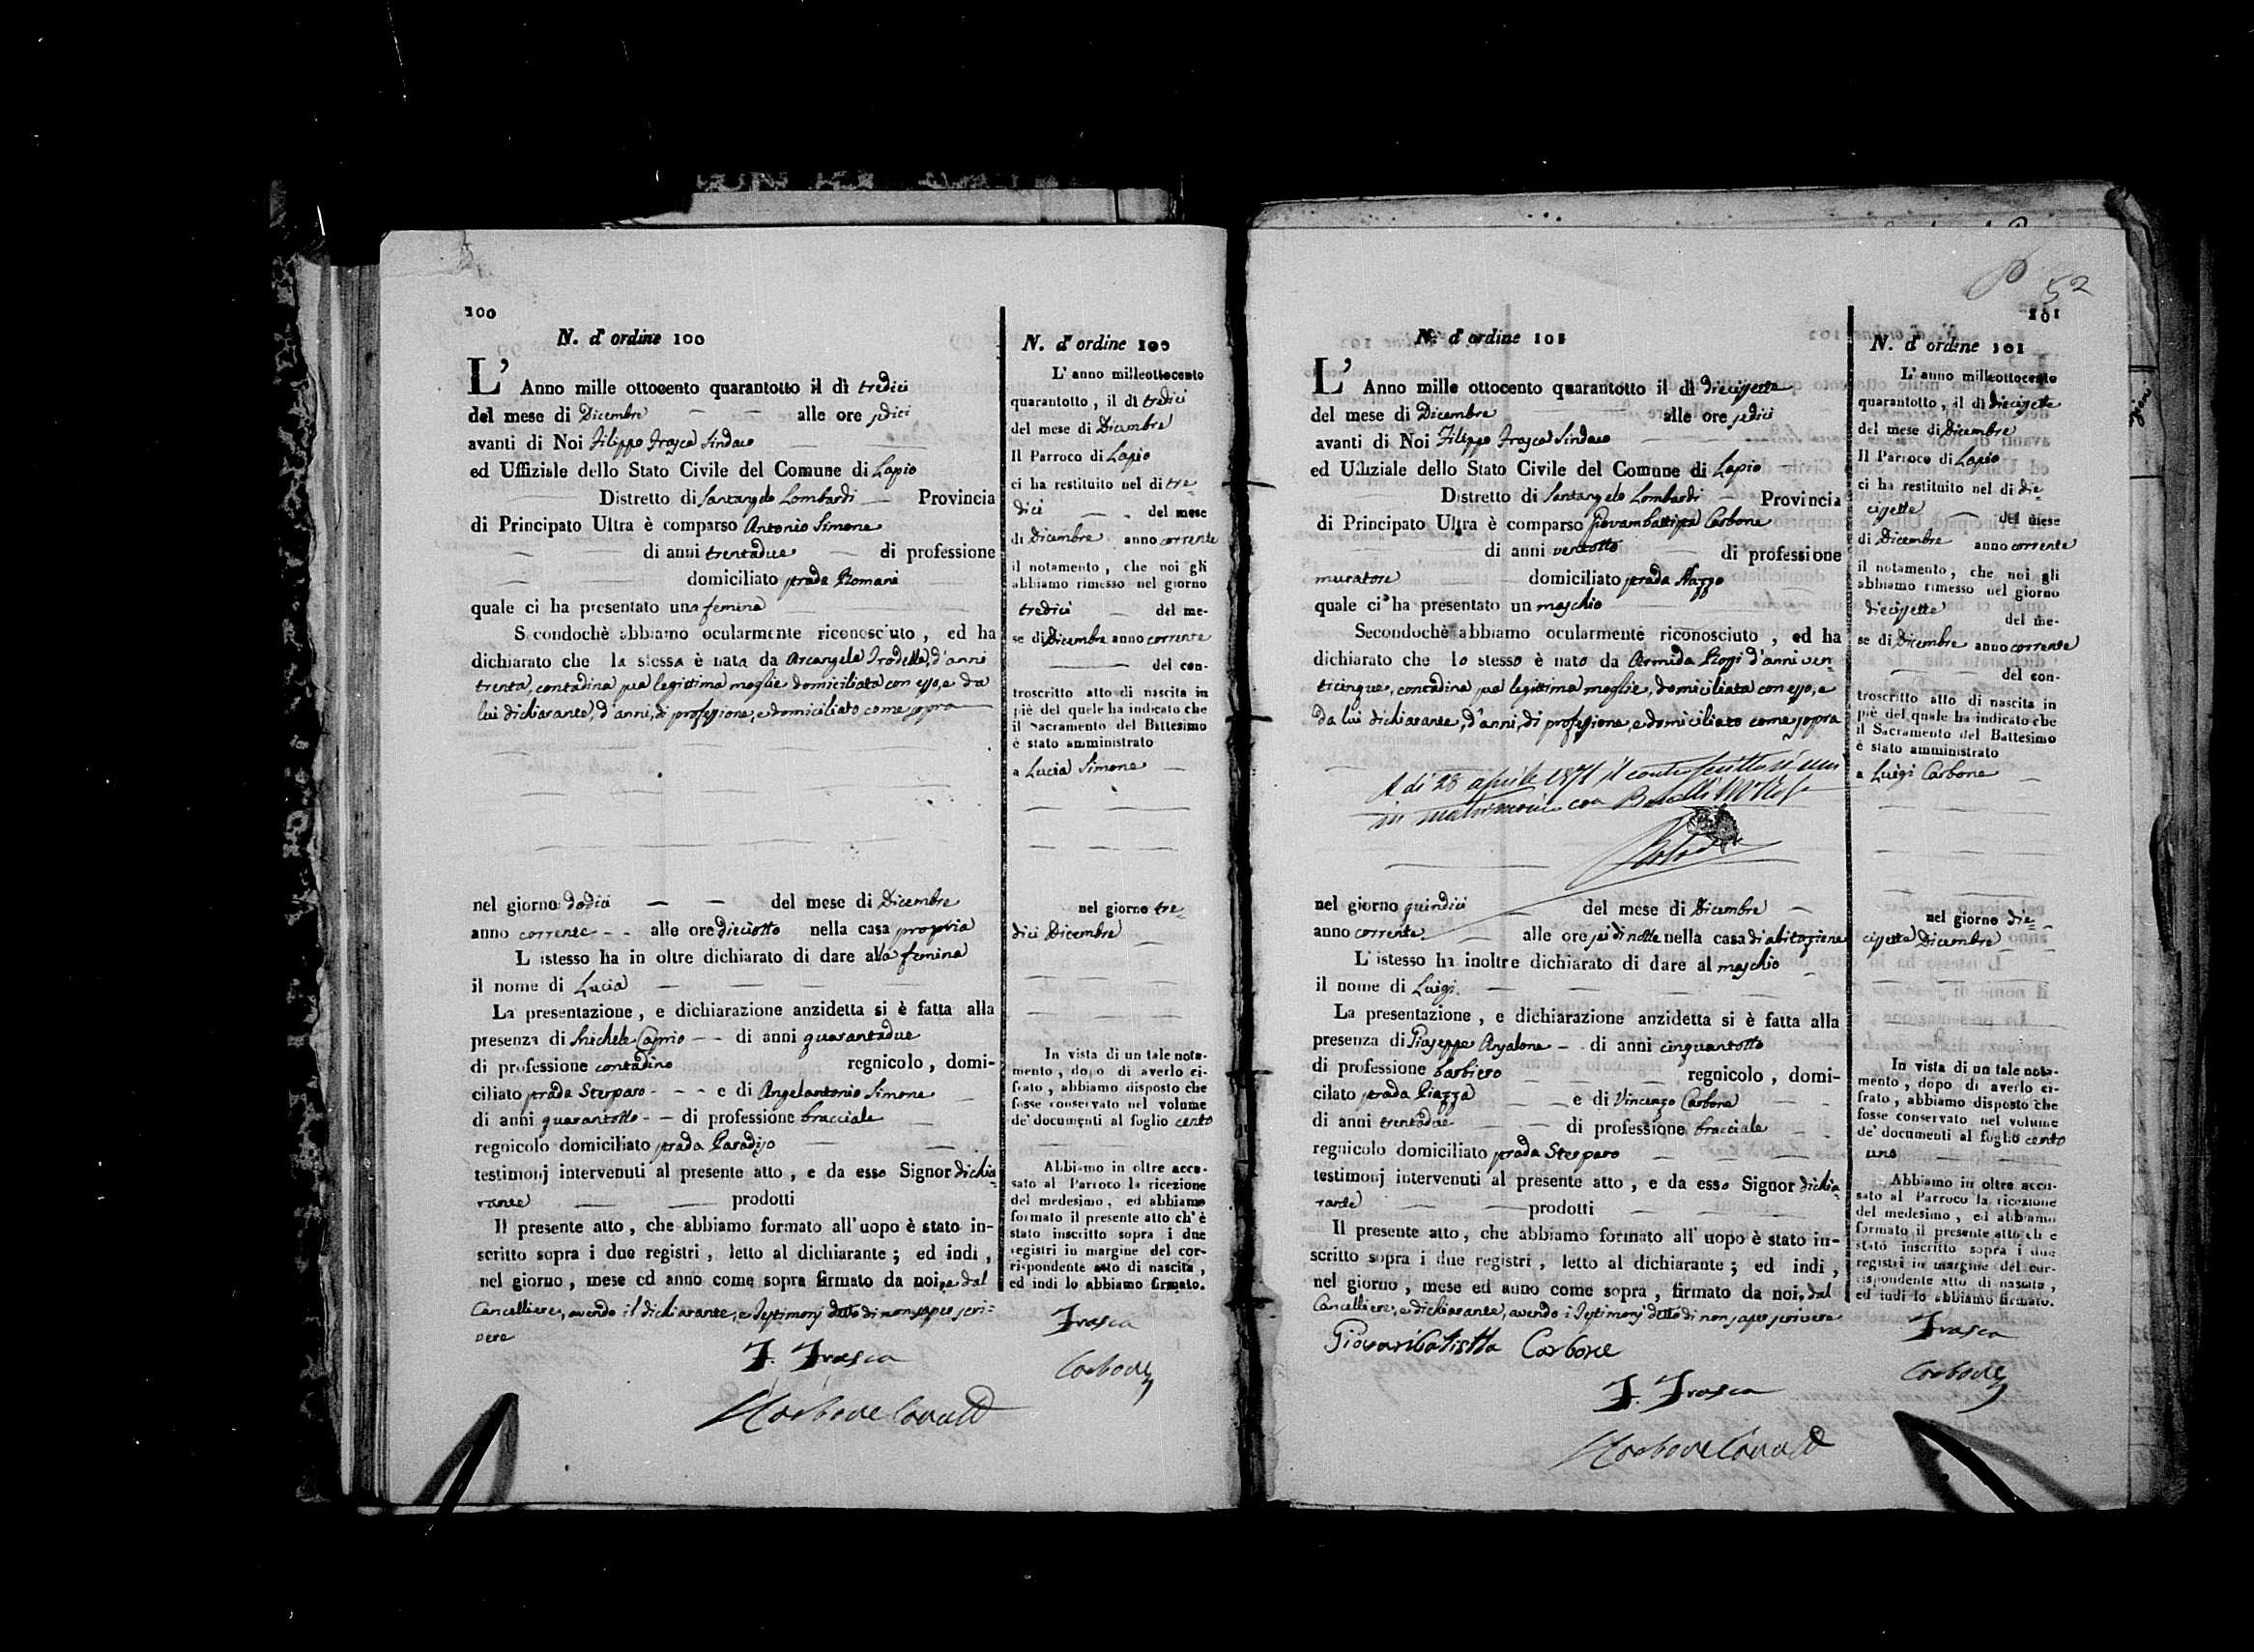 100
N. d' ordine 100
L' Anno mille ottocento quarantotto il dì tredici
del mese di Dicembre alle ore sedici
avanti di Noi Filippo Frasca Sindaco
ed Uffiziale dello Stato Civile del Comune di Lapio
Distretto di Santangelo Lombardi Provincia
di Principato Ultra è comparso Antonio Simone
di anni trentadue di professione
domiciliato strada Romani
quale ci ha presentato una femina
Secondochè abbiamo ocularmente riconosciuto, ed ha
dichiarato che la stessa è nata da Arcangela Trodella, d'anni
trenta, contadina sua legittima moglie domiciliata con esso, e da
lui dichiarante, d'anni, di professione, e domiciliato come sopra
nel giorno dodici del mese di Dicembre
anno corrente alle ore dieciotto nella casa propria
L istesso ha in oltre dichiarato di dare alla femina
il nome di Lucia
La presentazione, e dichiarazione anzidetta si è fatta alla
presenza di Michele Caprio di anni quarantadue
di professione contadino regnicolo, domi-
ciliato strada Sterparo e di Angelantonio Simone
di anni quarantotto di professione bracciale
regnicolo domiciliato strada Paradiso
testimonj intervenuti al presente atto, e da esso Signor dichia-
rante prodotti
Il presente atto, che abbiamo formato all'uopo è stato in-
scritto sopra i due registri, letto al dichiarante; ed indi,
nel giorno, mese ed anno come sopra firmato da noi, e dal
Cancelliere, avendo il dichiarante, e Testimonj detto di non saper scri-
vere
F. Frasca
Carbone
N. d' ordine 100
L' anno milleottocento
quarantotto, il dì tredici
del mese di Dicembre
Il Parroco di Lapio
ci ha restituito nel dì tre-
dici del mese
di Dicembre anno corrente
il notamento, che noi gli
abbiamo rimesso nel giorno
tredici del me-
se di Dicembre anno corrente
del con-
troscritto atto di nascita in
piè del quele ha indicato che
il Sacramento del Battesimo
è stato amministrato
a Lucia Simone
nel giorno tre-
dici Dicembre
In vista di un tale nota-
mento, dopo di averlo ci-
frato, abbiamo disposto che
fosse conservato nel volume
de' documenti al foglio cento
Abbiamo in oltre accu-
sato al Parroco la ricezione
del medesimo, ed abbiamo
formato il presente atto ch'è
stato inscritto sopra i due
registri in margine del cor-
rispondente atto di nascita,
ed indi lo abbiamo firmato.
Frasca
Carbone
52
101
N. d' ordine 101
L' Anno mille ottocento quarantotto il dì diecissette
del mese di Dicembre alle ore sedici
avanti di Noi Filippo Frasca Sindaco
ed Uffiziale dello Stato Civile del Comune di Lapio
Distretto di Santangelo Lombardi Provincia
di Principato Ultra è comparso Giovambattista Carbone
di anni ventotto di professione
muratore domiciliato strada
quale ci ha presentato un maschio
Secondochè abbiamo ocularmente riconosciuto, ed ha
dichiarato che lo stesso è nato da Armida Rossi d'anni ven-
ticinque, contadina sua legittima moglie, domiciliata con esso, e
da lui dichiarante, d'anni, di professione, e domiciliato come sopra
A dì 28 aprile 1871 il controscritto si unì
in matrimonio con
nel giorno quindici del mese di Dicembre
anno corrente alle ore sei di notte nella casa di abitazione
L' istesso ha inoltre dichiarato di dare al maschio
il nome di Luigi
La presentazione, e dichiarazione anzidetta si è fatta alla
presenza di Giuseppe Anzalone di anni cinquantotto
di professione barbiero regnicolo, domi-
cilato strada Piazza e di Vincenzo Carbone
di anni trentadue di professione bracciale
regnicolo domiciliato strada Sterparo
testimonj intervenuti al presente atto, e da esso Signor dichia-
rante prodotti
Il presente atto, che abbiamo formato all' uopo è stato in-
scritto sopra i due registri, letto al dichiarante; ed indi,
nel giorno, mese ed anno come sopra, firmato da noi, dal
Cancelliere, e dichiarante, avendo i Testimonj detto di non saper scrivere
Giovanibatistta Carbone
F. Frasca
Carbone
N. d' ordine 101
L' anno milleottocento
quarantotto, il dì diecissette
del mese di Dicembre
Il Parroco di Lapio
ci ha restituito nel dì die-
cissette del mese
di Dicembre anno corrente
il notamento, che noi gli
abbiamo rimesso nel giorno
diecissette del me-
se di Dicembre anno corrente
del con-
troscritto atto di nascita in
piè del quale ha indicato che
il Sacramento del Battesimo
è stato amministrato
a Luigi Carbone
nel giorno die-
cissette Dicembre
In vista di un tale nota-
mento, dopo di averlo ci-
frato, abbiamo disposto che
fosse conservato nel volume
de' documenti al foglio cento
uno
Abbiamo in oltre accu-
sato al Parroco la ricezione
del medesimo, ed abbiamo
formato il presente atto ch'è
stato inscritto sopra i due
registri in margine del cor-
rispondente atto di nascita,
ed indi lo abbiamo firmato.
Frasca
Carbone